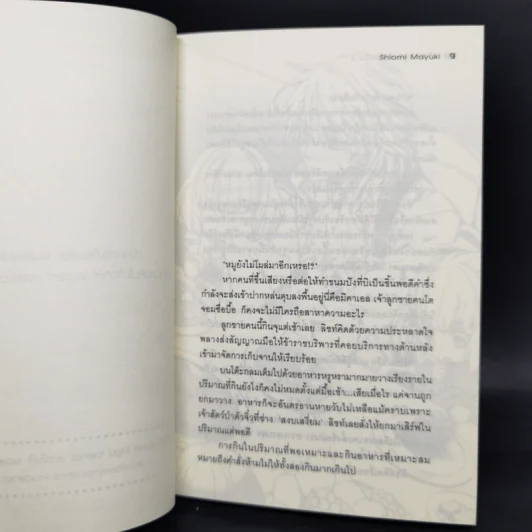 Shiomi Mayuki 9
"หมูยังไม่โผล่มาอีกเหรอ!?"
หากคนที่ขึ้นเสียงหรือต่อให้ทำขนมปังที่บิเป็นชิ้นพอดีคำซึ่ง
กำลังจะส่งเข้าปากหล่นตุบลงพื้นอยู่นี่คือมิคาเอล เจ้าลูกชายคนโต
จอมซื่อบื้อ ก็คงจะไม่มีใครถือสาหาความอะไร
ลูกชายคนนี้กินจุแต่เช้าเลย ลิซท์คิดด้วยความประหลาดใจ
พลางส่งสัญญาณมือให้ข้าราชบริพารที่คอยบริการทางด้านหลัง
เข้ามาจัดการเก็บจานให้เรียบร้อย
บนโต๊ะกลมเต็มไปด้วยอาหารหรูหรามากมายวางเรียงรายใน
ปริมาณที่กินยังไงก็คงไม่หมดตั้งแต่มื้อเช้า...เสียเมื่อไร แค่จานถูก
ยกมาวาง อาหารก็จะอันตรธานหายวับไปไม่เหลือแม้คราบเพราะ
เจ้าสัตว์ป่าตัวจิ๋วที่ช่าง 'สงบเสงี่ยม' ลิซท์เลยสั่งให้ยกมาเสิร์ฟใน
ปริมาณแต่พอดี
การกินในปริมาณที่พอเหมาะและกินอาหารที่เหมาะสม
หมายถึงคำสั่งห้ามไม่ให้ทั้งสองกินมากเกินไป